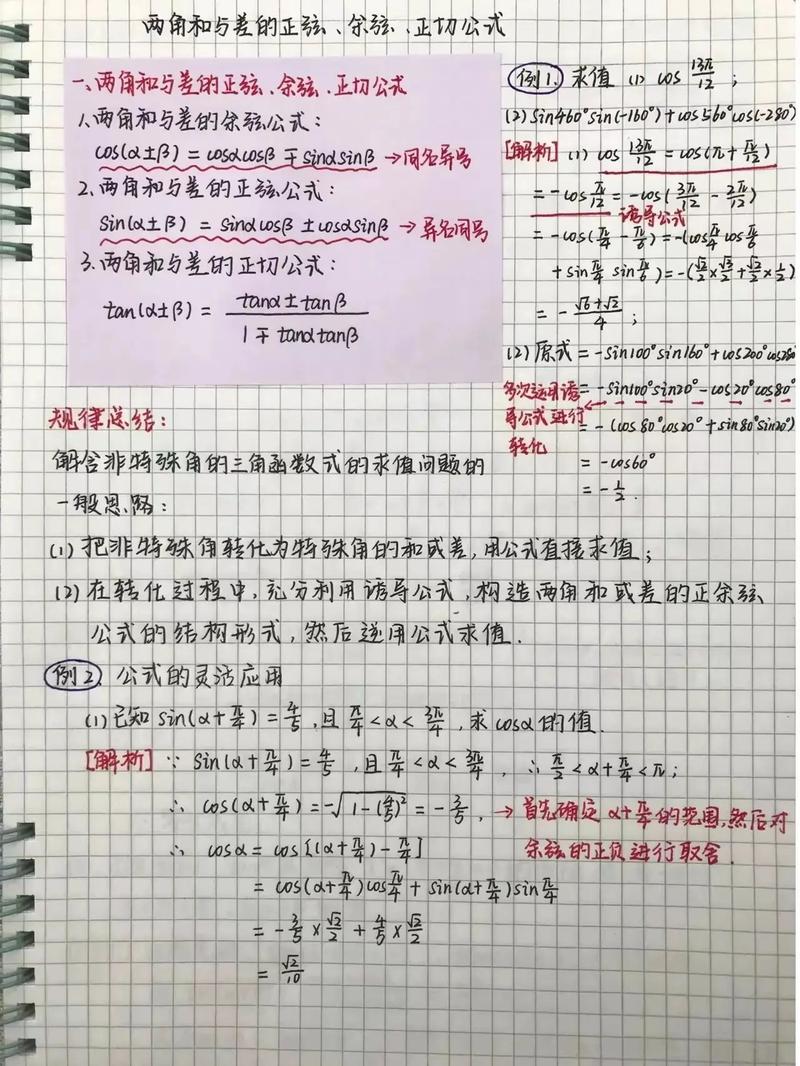 两角和与差的正弦、余弦、正切公式
一、两角和与差的正弦、余弦、正切公式
1.两角和与差的余弦公式:
cos(α±β)=cosαcosβ∓sinαsinβ→同名异号
2.两角和与差的正弦公式:
sin(α±β)=sinαcosβ±cosαsinβ→异名同号
3.两角和与差的正切公式:
tan(α±β)=(tanα±tanβ)/(1∓tanαtanβ)
例1.求值(1)cos13π/12;
(2)sin460°sin(-160°)+cos560°cos(-280°)
[解析](1)cos13π/12=cos(π+π/12)
=-cosπ/12=-cos(3π/12-2π/12)
诱导公式
=-cos(π/4-π/6)=-(cosπ/4cosπ/6
+sinπ/4sinπ/6)=-(√2/2×√3/2+√2/2×1/2)
=-(√6+√2)/4;
(2)原式=-sin100°sin160°+cos200°cos280°
=-sin100°sin20°-cos20°cos80°
多次运用诱
导公式进行
转化
=-(cos80°cos20°+sin80°sin20°)
=-cos60°
=-1/2.
规律总结:
解含非特殊角的三角函数式的求值问题的
一般思路:
(1)把非特殊角转化为特殊角的和或差,用公式直接求值;
(2)在转化过程中,充分利用诱导公式,构造两角和或差的正余弦
公式的结构形式,然后逆用公式求值.
例2.公式的灵活应用
(1)已知sin(α+π/4)=4/5,且π/4<α<3π/4,求cosα的值.
[解析]∵sin(α+π/4)=4/5,且π/4<α<3π/4,∴π/2<α+π/4<π;
∴cos(α+π/4)=-√(1-(4/5)²)=-3/5,→首先确定α+π/4的范围,然后对
余弦的正负进行取舍.
∴cosα=cos[(α+π/4)-π/4]
=cos(α+π/4)cosπ/4+sin(α+π/4)sinπ/4
=-3/5×√2/2+4/5×√2/2
=√2/10